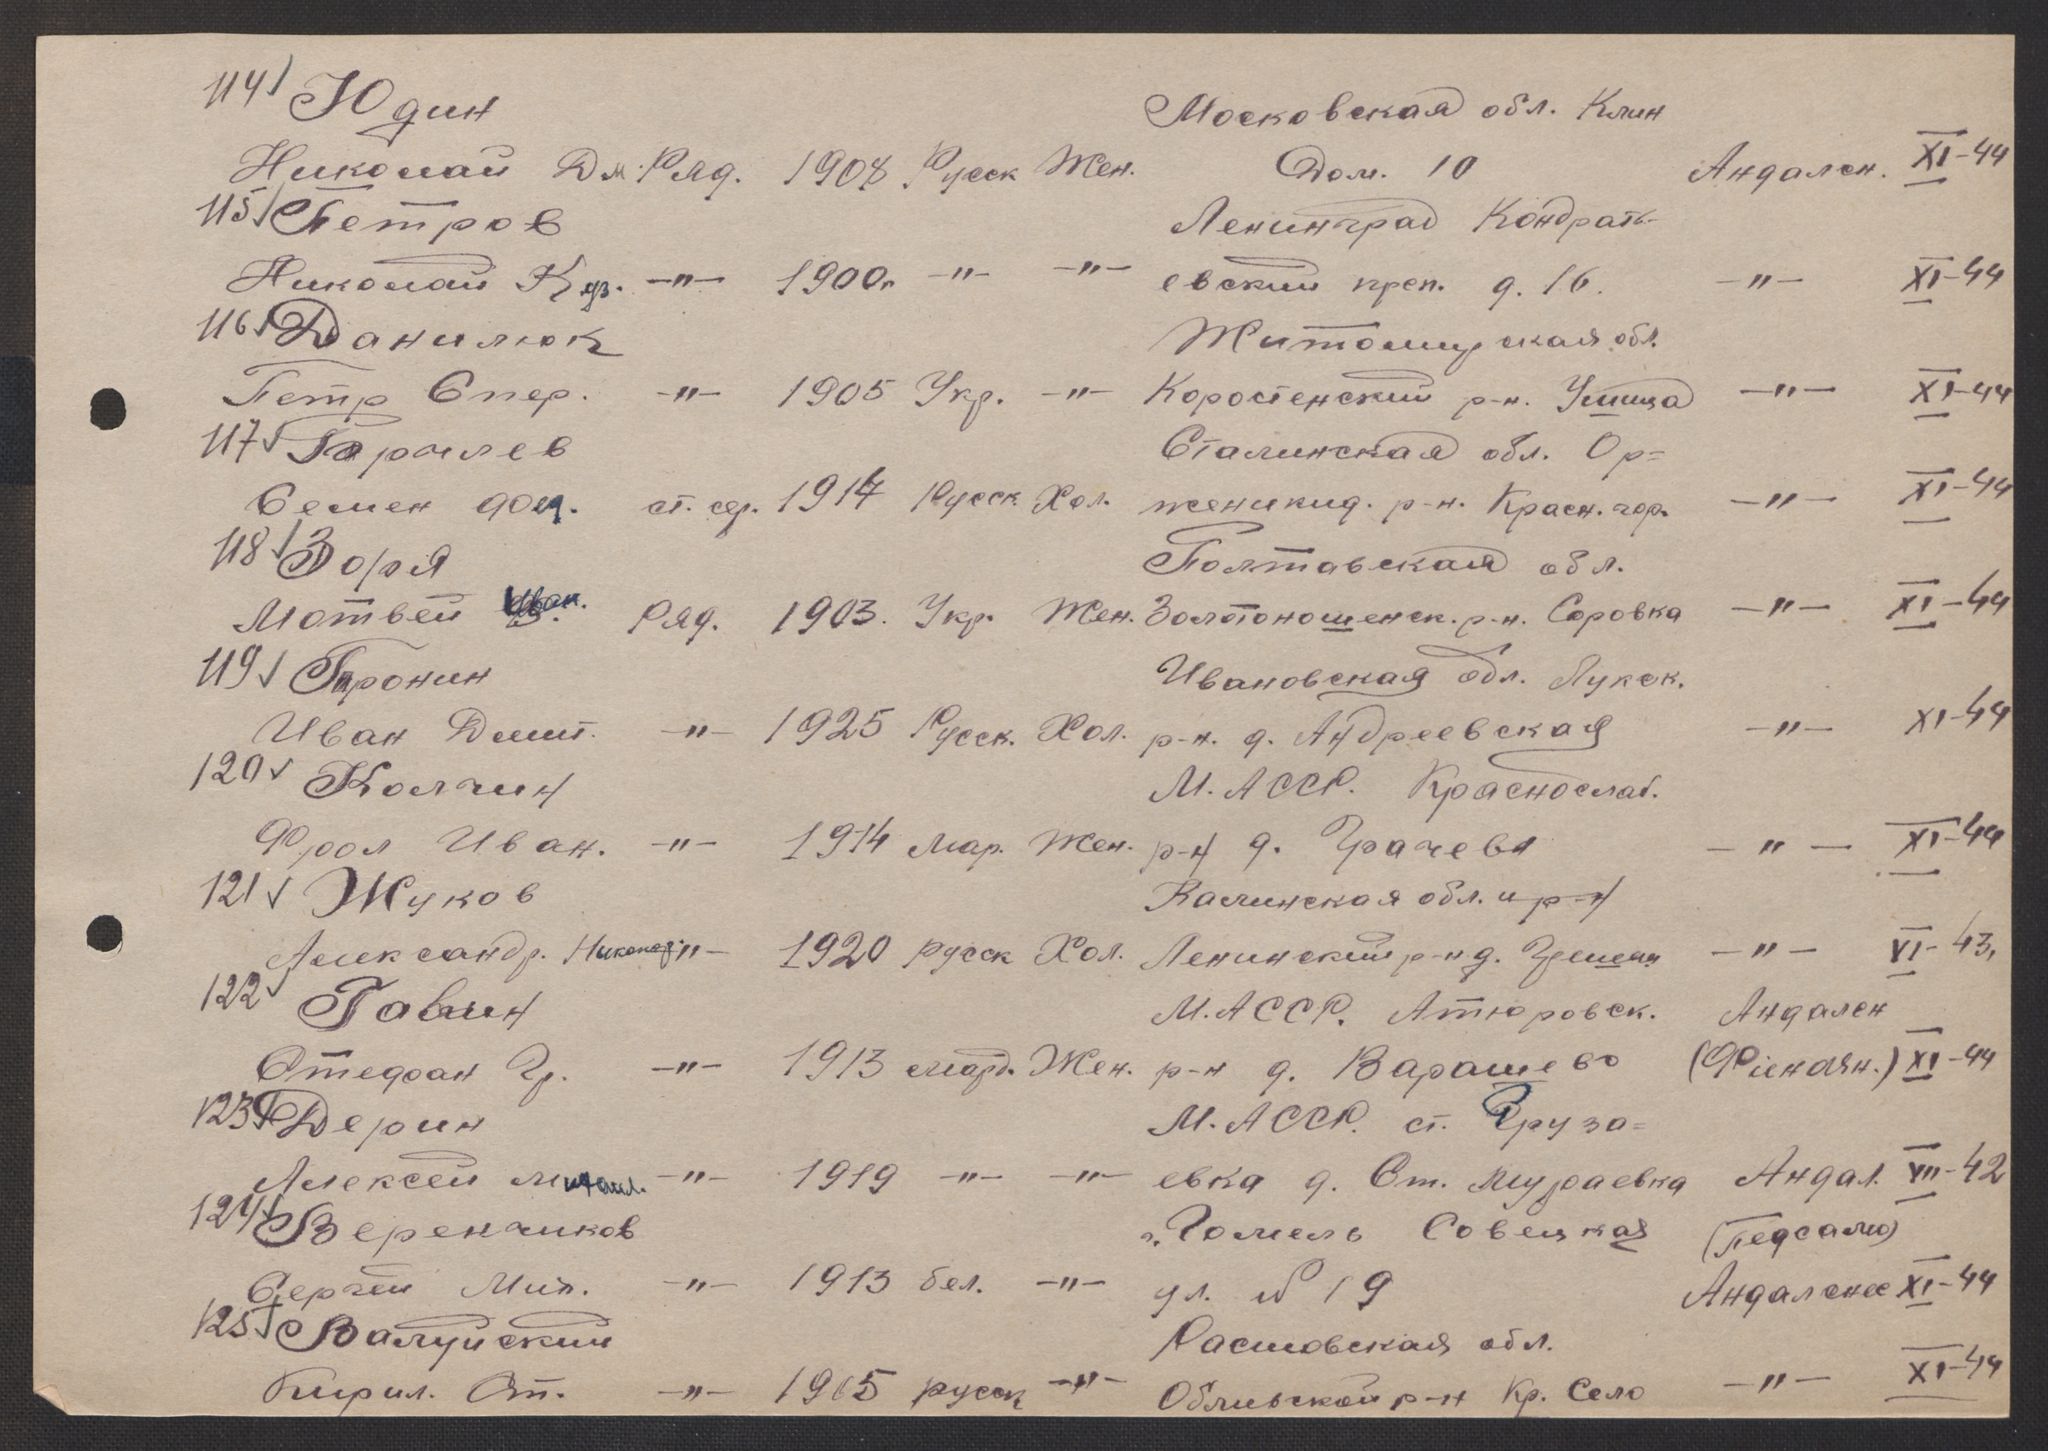 114 Юдин Московская обл. Клин
Николай Дм. Ряд. 1908 Русск Жен. Дом. 10 Андален. XI-44
115 Петров Ленинград Кондрать-
Николай Куз. -"- 1900г -"- -"- евский преп. д. 16. -"- XI-44
116 Данилюк Житомирская обл.
Петр Спер. -"- 1905 Укр. -"- Коростенский р-н. Умица -"- XI-44
117 Сталинская обл. Ор=
Семен ст. сер. 1914 Русск Хол. женикид. р-н. Красн. гор. -"- XI-44
118 Зоря Полтавская обл.
Мотвей Иван. Ряд. 1903. Укр. Жен. Золотоношенск. р-н. Соровка -"- XI-44
119 Пронин Ивановская обл. Лукск.
Иван Дмит. -"- 1925 Русск. Хол. р-н. д. Андреевская -"- XI-44
120 Колчин М. АССР. Краснослаб.
Фрол Иван. -"- 1914 мар. Жен. р-н д. Грачева -"- XI-44
121 Жуков Калинская обл. и р-н
Александр. -"- 1920 русск Хол. Ленинский р-н д. -"- VI-43,
122 М. АССР. Атюровск. Андален
Стефан Гр. -"- 1913 морд. Жен. р-н д. Варашево XI-44
123 Дерин М. АССР. ст. Груза=
Алексей Михаил. -"- 1919 -"- -"- евка д. Ст. Мураевка Андал. VII-42
124 Веренчиков г. Гомель Совецкая (Педсамо)
Сергей Мих. -"- 1913 бел. -"- ул. № 19 Андалснес XI-44
125 Валуйский Расшовская обл.
Кирил. Ст. -"- 1905 русск -"- Обливской р-н Кр. Село -"- XI-44